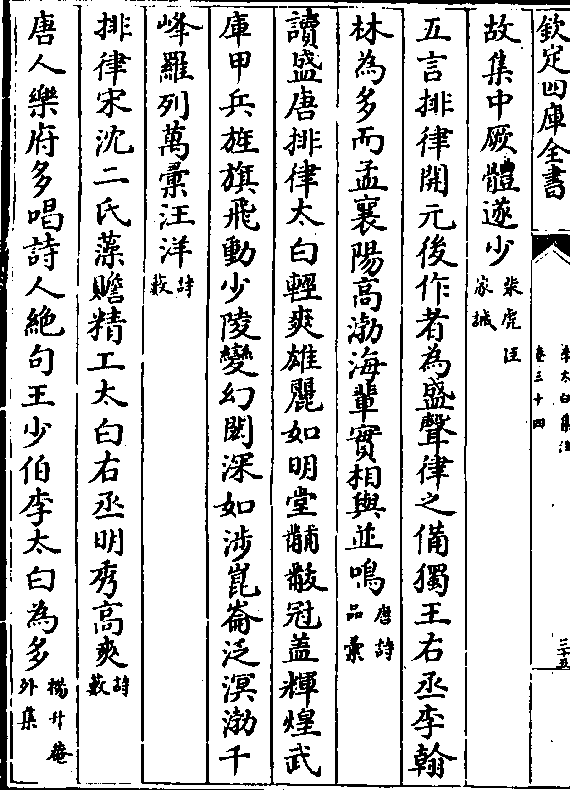 欽定四庫全書
李太白集注
卷三十四
三十五
故集中厥體遂少柴虎臣家誡
五言排律開元後作者為盛聲律之備獨王右丞李翰
林為多而孟襄陽高渤海輩實相與並鳴唐詩品彙
讀盛唐排律太白輕爽雄麗如明堂黼黻冠蓋輝煌武
庫甲兵旌旗飛動少陵變幻閎深如涉崑崙泛溟渤千
峰羅列萬彚汪洋詩藪
排律宋沈二氏藻贍精工太白右丞明秀高爽詩藪
唐人樂府多唱詩人絶句王少伯李太白為多楊升菴外集